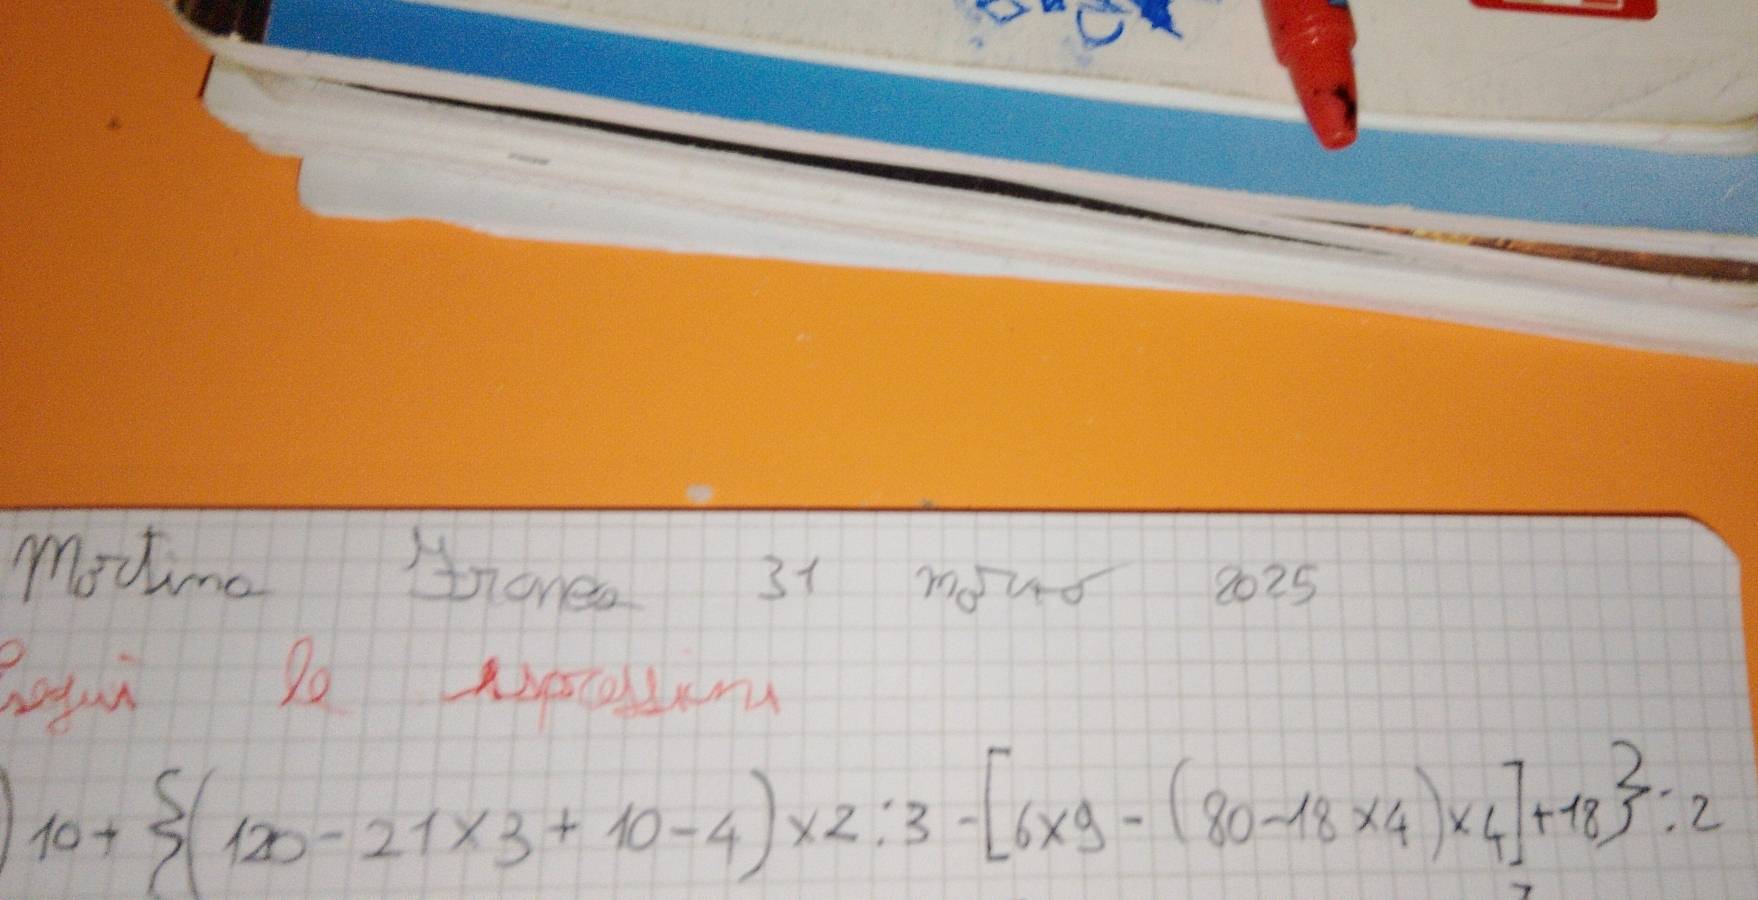 Martina 31 marzo 2025
Esegui le espressioni
) 10 + {( 120 - 21 × 3 + 10 - 4 ) × 2 : 3 - [ 6 × 9 - ( 80 - 18 × 4 ) × 4 ] + 18 } : 2